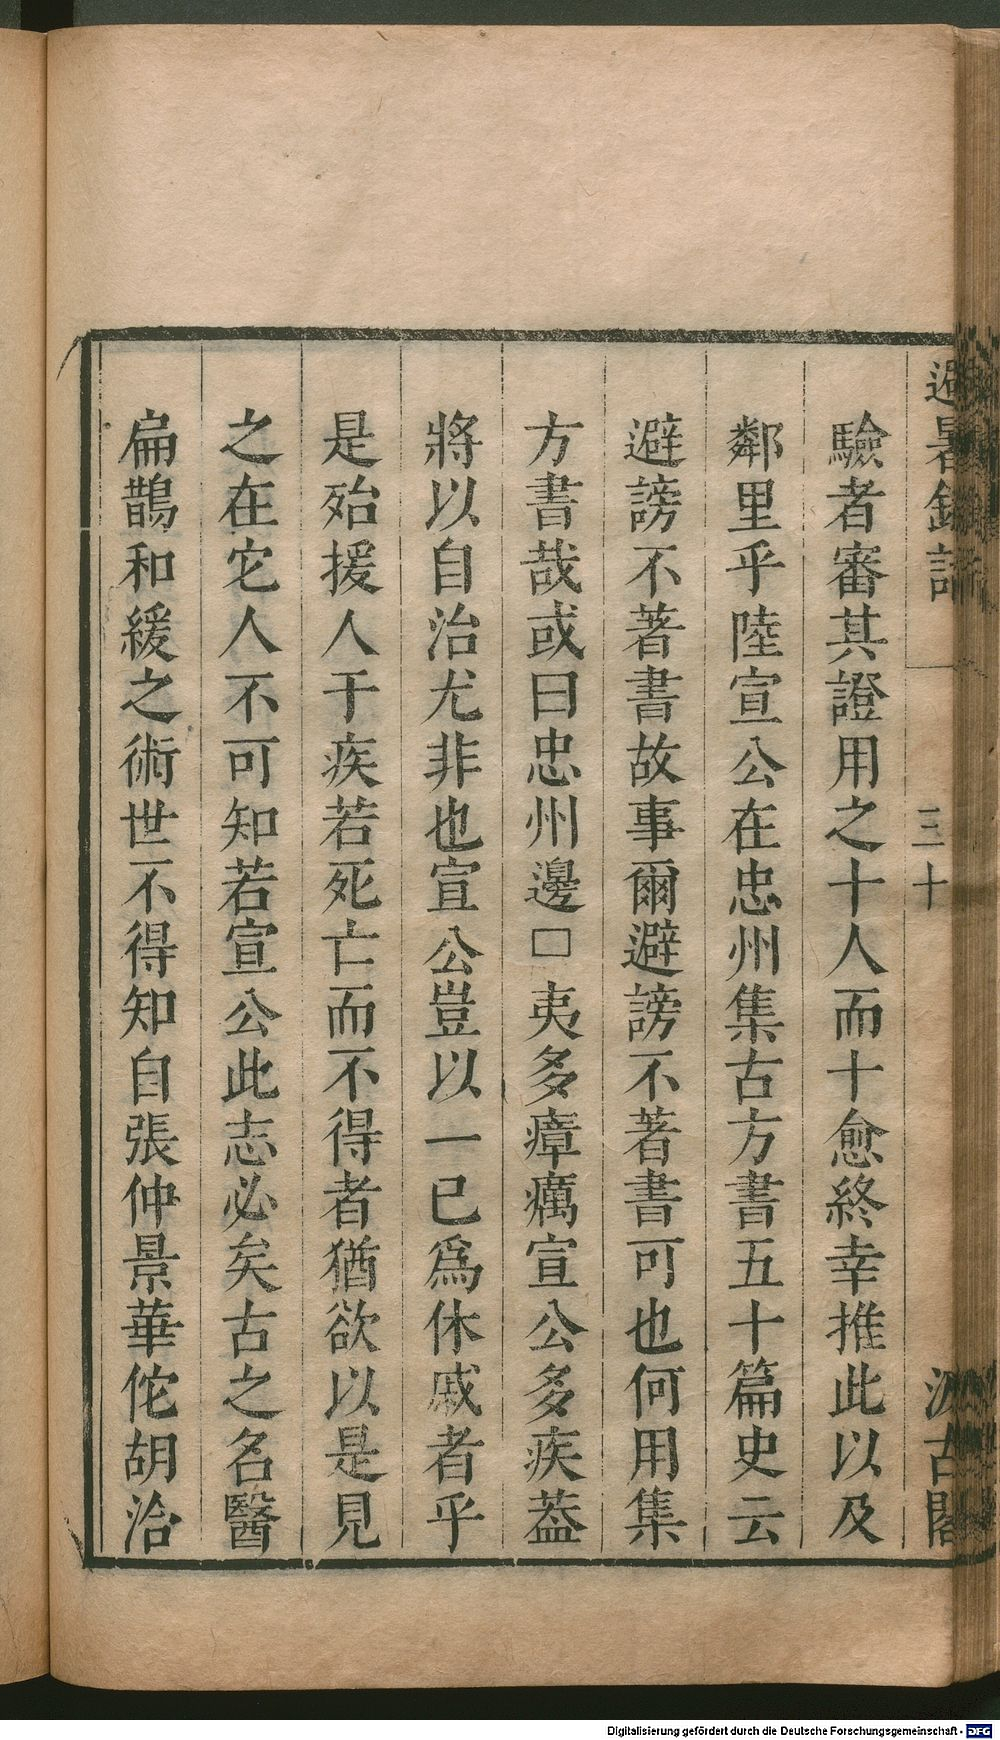 避暑錄話
三十
汲古閣
驗者審其證用之十人而十愈終幸推此以及
鄰里乎陸宣公在忠州集古方書五十篇史云
避謗不著書故事爾避謗不著書可也何用集
方書哉或曰忠州邊□夷多瘴癘宣公多疾葢
將以自治尤非也宣公豈以一已爲休戚者乎
是殆援人于疾若死亡而不得者猶欲以是見
之在它人不可知若宣公此志必矣古之名醫
扁鵲和緩之術世不得知自張仲景華佗胡洽
Digitalisierung gefördert durch die Deutsche Forschungsgemeinschaft - DFG